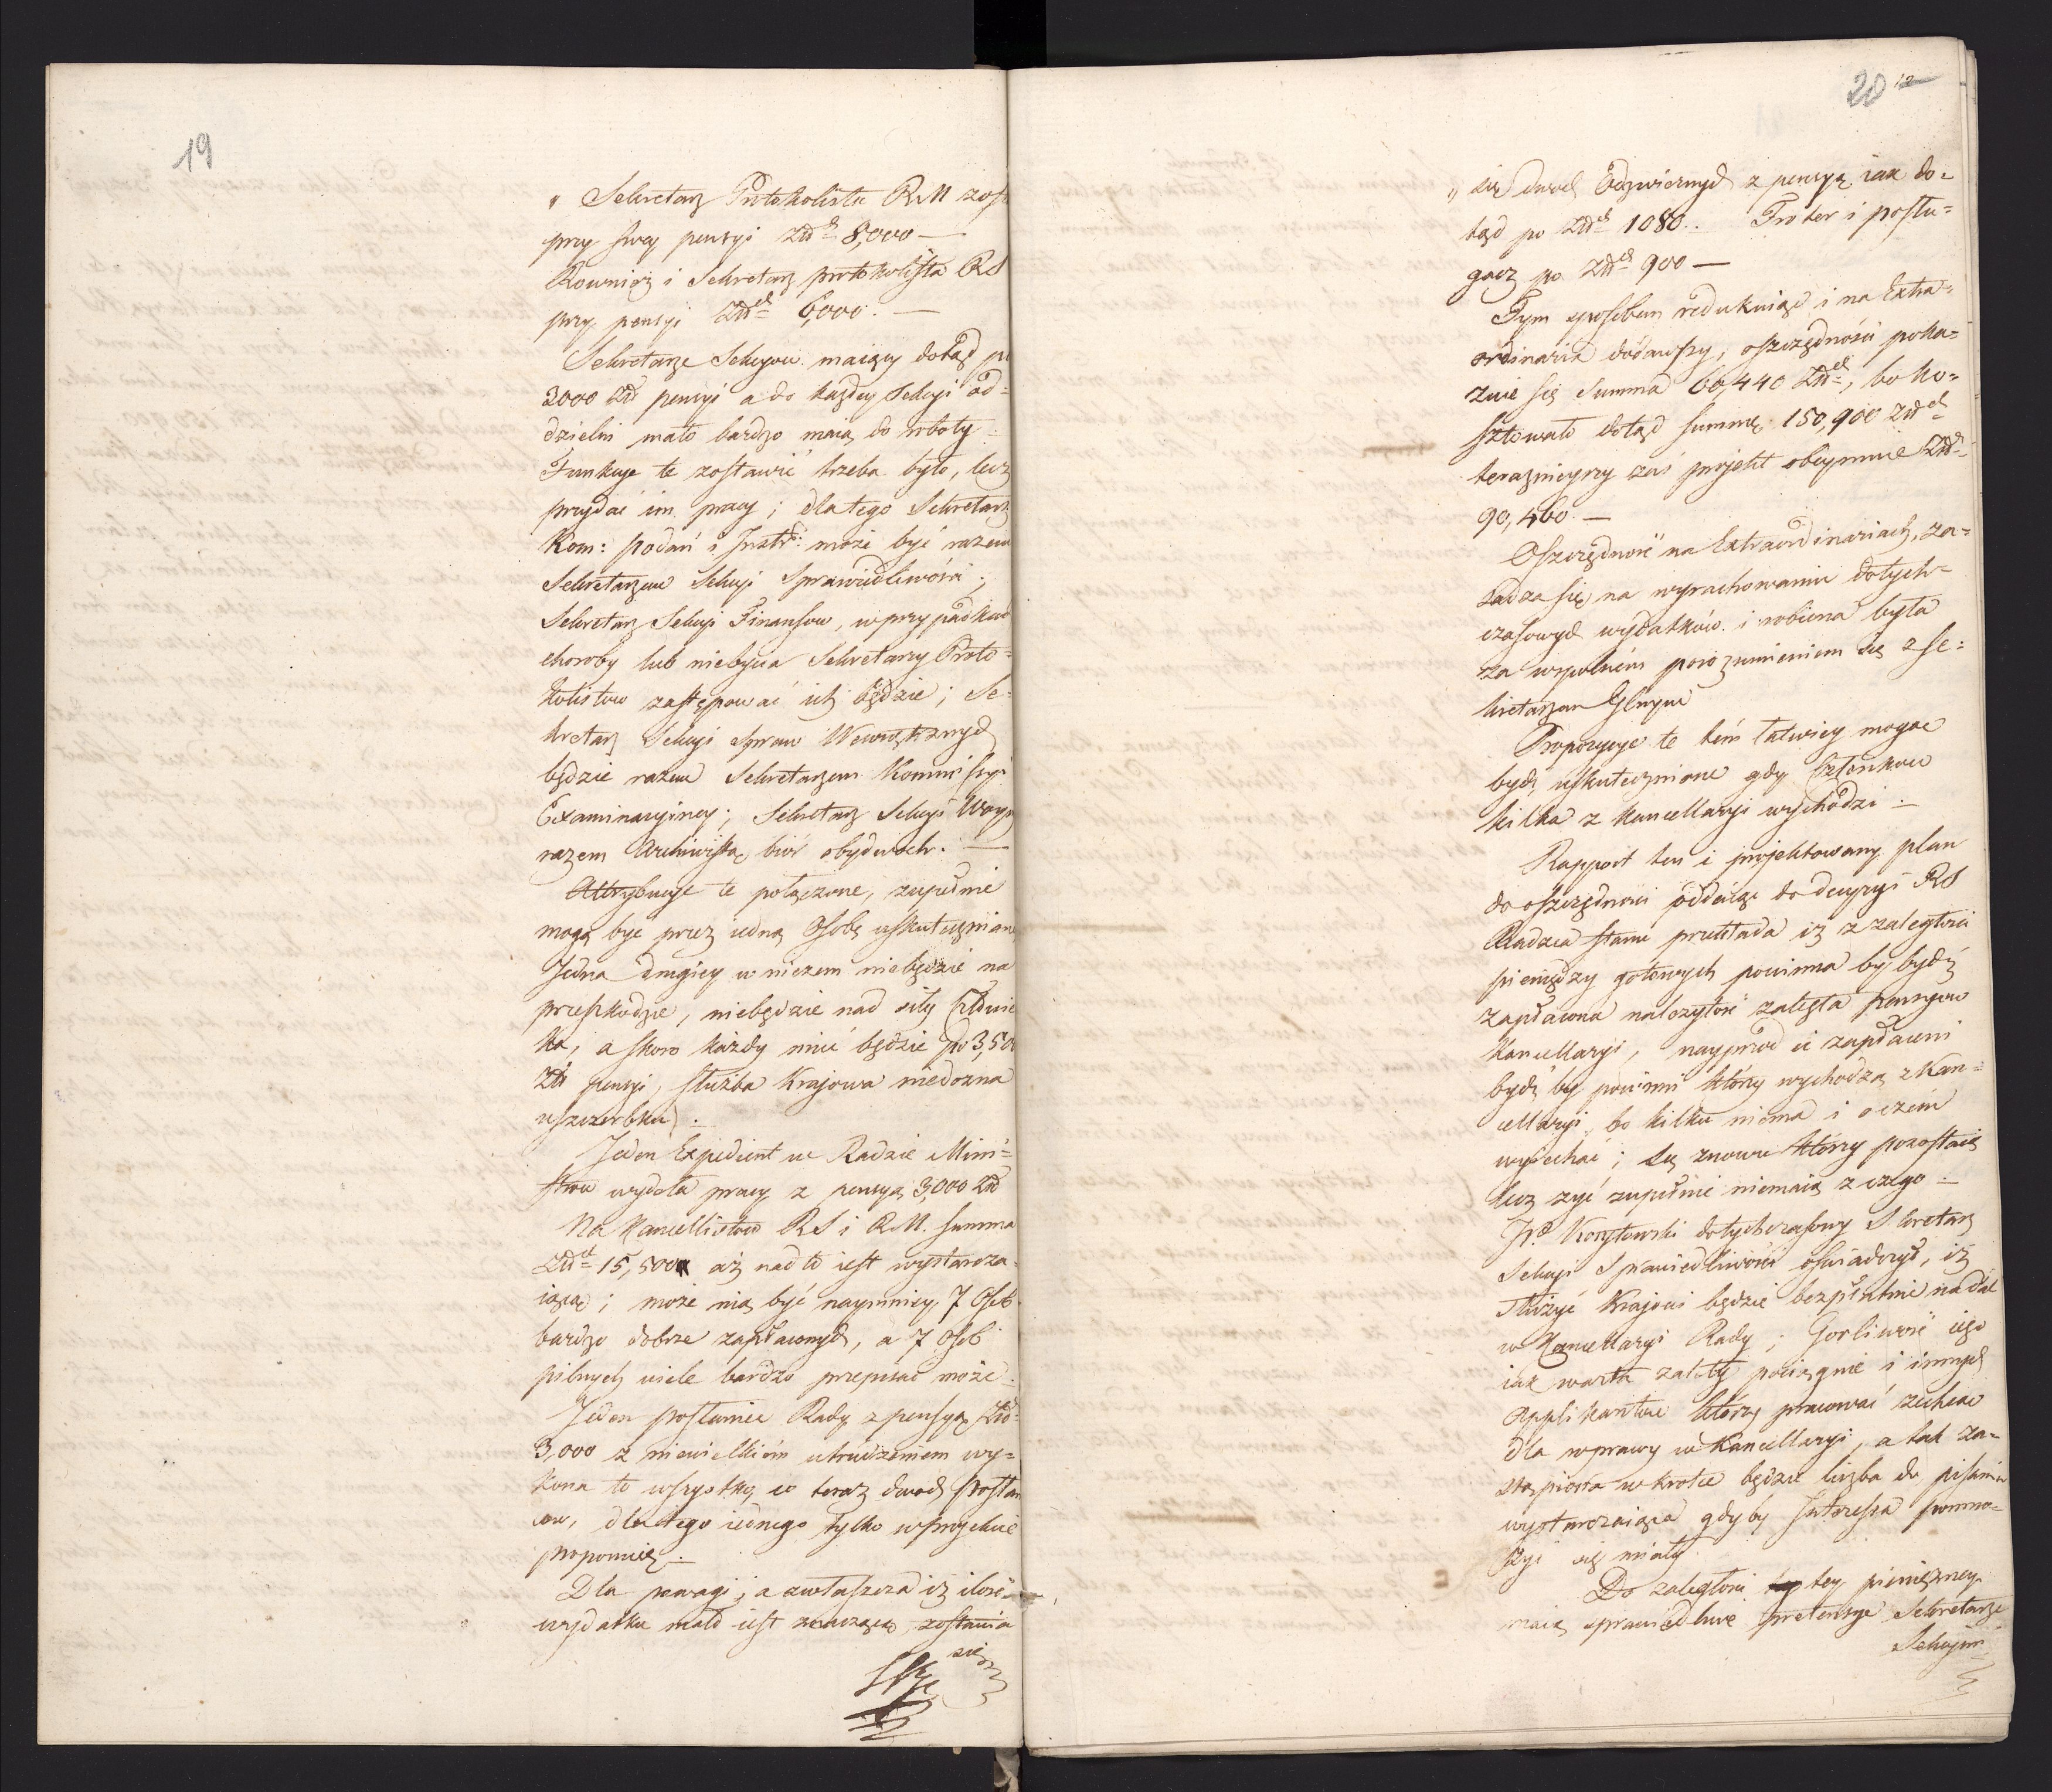 19
" Sekretarz Protokolista RM zost
przy swey pensyi Złłch 8,000 —
Rownież i Sekretarz protokolista RS
przy pensyi Złłch 6,000. —
Sekretarze Sekcyow maiący dotąd po
3000 Złł pensyi a do każdey Sekcyi od=
dzielni mało bardzo maią do roboty.
Funkcye te zostawić trzeba było, lecz
przydać im pracy; dla tego Sekretarz
Kom: podań i Instr: może być razem
Sekretarzem Sekcyi Sprawiedliwości;
Sekretarz Sekcyi Finansow, w przypadku
choroby lub niebycia Sekretarzy Proto=
kolistow zastępować ich będzie; Se=
kretarz Sekcyi Spraw Wewnętrznych
będzie razem Sekretarzem Kommissyi
Examinacyiney; Sekretarz Sekcyi Woyny
razem Archiwistą biór obydwoch. —
Attrybucye te połączone, zupełnie
mogą być przez iedną Osobę uskutecznian
Jedna drugiey w niczem niebędzie na
przeszkodzie, niebędzie nad siły Człowie
ka, a skoro każdy mieć będzie po 3,500
Złł pensyi, służba Krajowa niedozna
uszczerbku.
Jeden Expedient w Radzie Mini=
strow wydoła pracy z pensyą 3,000 Złł
Na Kancellistow RS i RM. summa
Złłch 15,500 aż nadto iest wystarcza=
iącą; może nią być naymniey 7 Osob
bardzo dobrze zapłaconych, a 7 Osob
pilnych wiele bardzo przepisać może.
Jeden posłaniec Rady z pensyą Złł
3,000 z niewielkiém utrudzeniem wy=
kona to wszystko co teraz dwoch Posłań
cow, dla tego iednego tylko w projekcie
proponuię. —
Dla powagi, a zwłaszcza iż ilość
wydatku mało iest znaczącą, zostawia
się
20 12
" się dwoch Odźwiernych z pensyą iak do=
tąd po Złłch 1080.. Froter i posłu=
gacz po Złłch 900 —
Tym sposobem redukuiąc i na Extra=
ordinaria dodawszy, oszczędności poka=
zuie się Summa 60,440 Złłch, bo ko=
sztowało dotąd summę 150,900 Złłch
teraznieyszy zaś projekt obeymuie Złłch
90,460. —
Oszczędność na Extraordinariach, za=
sadza się na wyrachowaniu dotych=
czasowych wydatków i robiona była
za wspolném porozumieniem się z Se=
kretarzem Głnym
Propozycye te tém łatwiey mogące
bydź uskutecznione gdy Członkow
kilka z kancellaryi wychodzi. —
Rapport ten i projektowany plan
do oszczędności oddaiąc do decyzyi RS
Radzca Stanu przekłada iż z zaległości
pieniędzy gotowych powinna by bydź
zapłacona należytość zaległa pensyow
Kancellaryi, nayprzod ci zapłaceni
bydź by powinni którzy wychodzą z Kan=
cellaryi, bo kilku niema i o czém
wyiechać; Są znowu którzy pozostaią
lecz żyć zupełnie niemaią z czego. —
JP. Korytowski dotychczasowy Sekretarz
Sekcyi Sprawiedliwości oświadczył, iż
służyć Krajowi będzie bezpłatnie nadal
w Kancellaryi Rady; Gorliwość iego
iak warta zalety pociągnie i innych
Applikantow którzy pracować zechcą
dla wprawy w Kancellaryi, a tak za=
stąpiona wkrotce będzie liczba do pisania
wystarczaiąca gdyby Interessa pomno=
żyć się miały.
Do zaległości tey pienięźney
maią sprawiedliwe pretensye Sekretarze
Sekcyin=